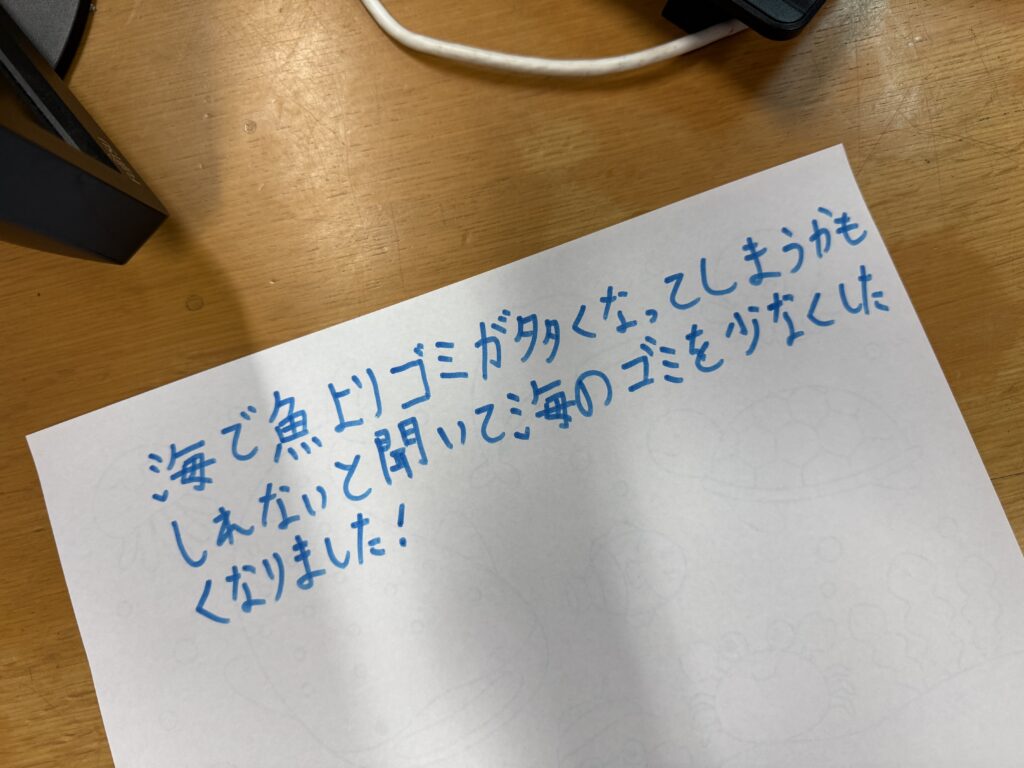 海で魚よりゴミが多くなってしまうかも
しれないと聞いて海のゴミを少なくした
くなりました!